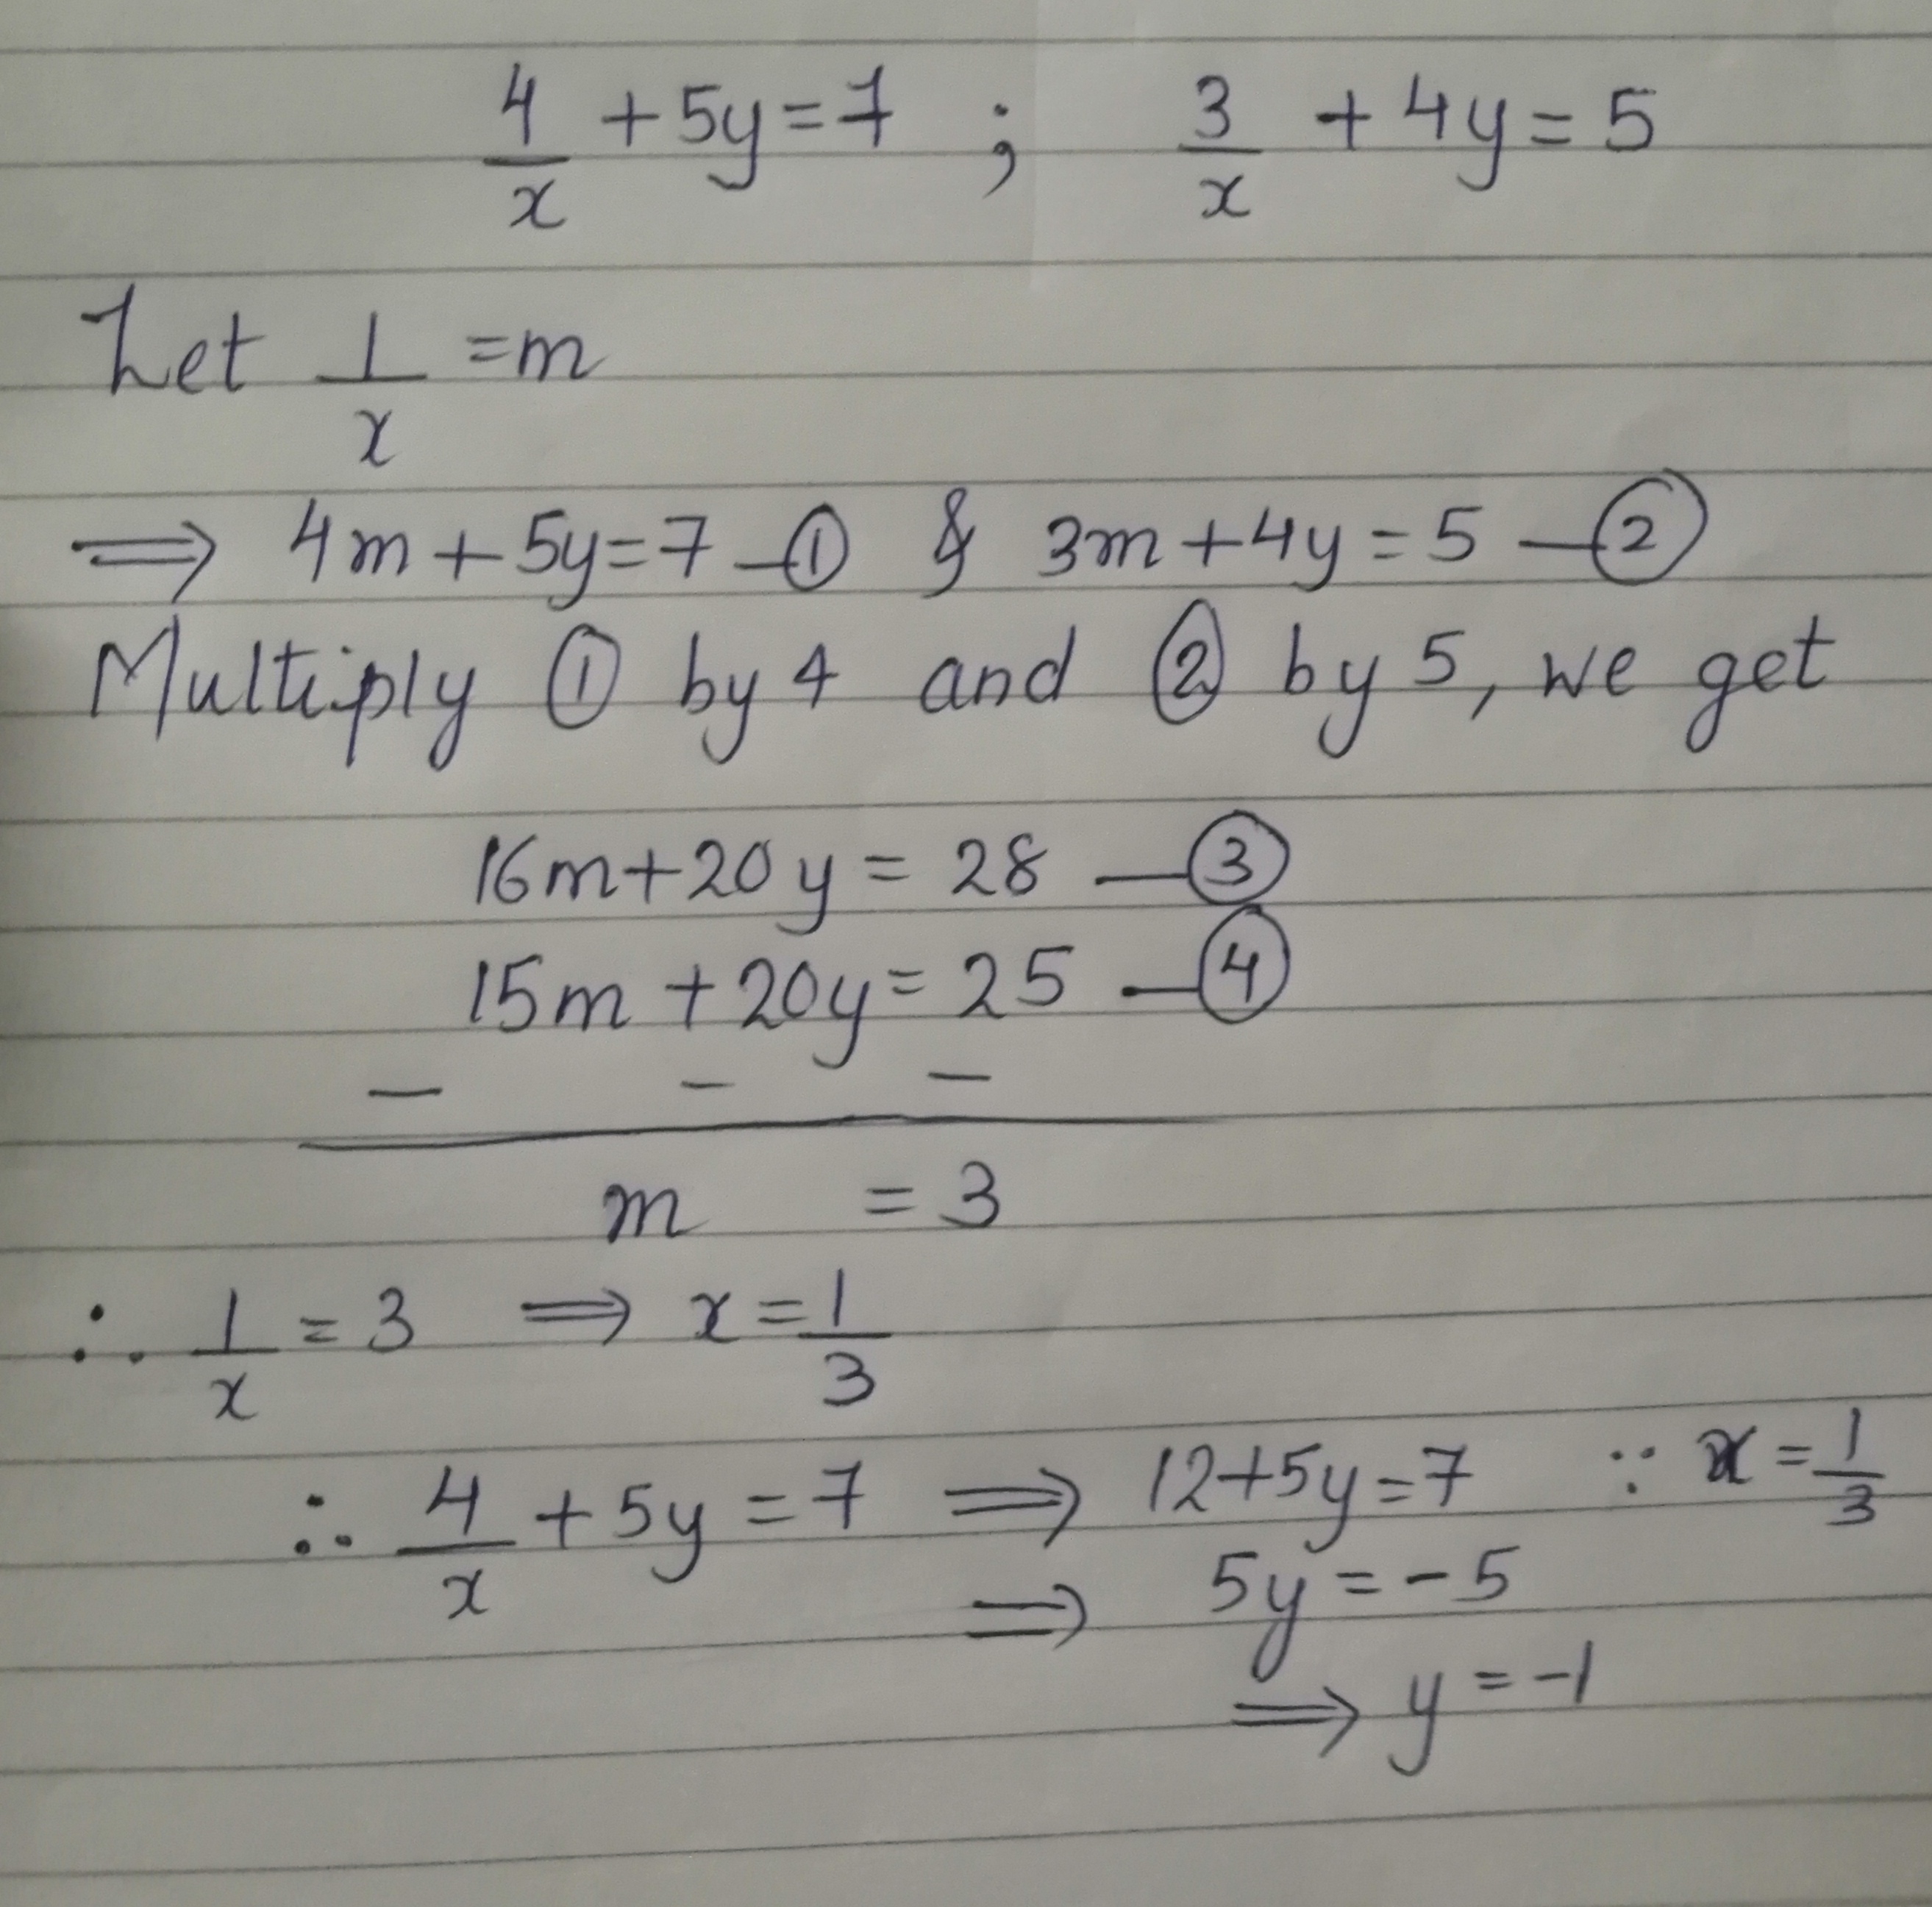 4/x + 5y = 7 ; 3/x + 4y = 5
Let 1/x = m
⟹ 4m + 5y = 7 — ① & 3m + 4y = 5 — ②
Multiply ① by 4 and ② by 5, we get
16m + 20y = 28 — ③
15m + 20y = 25 — ④
− − −
m = 3
∴ 1/x = 3 ⟹ x = 1/3
∴ 4/x + 5y = 7 ⟹ 12 + 5y = 7 ∵ x = 1/3
⟹ 5y = -5
⟹ y = -1